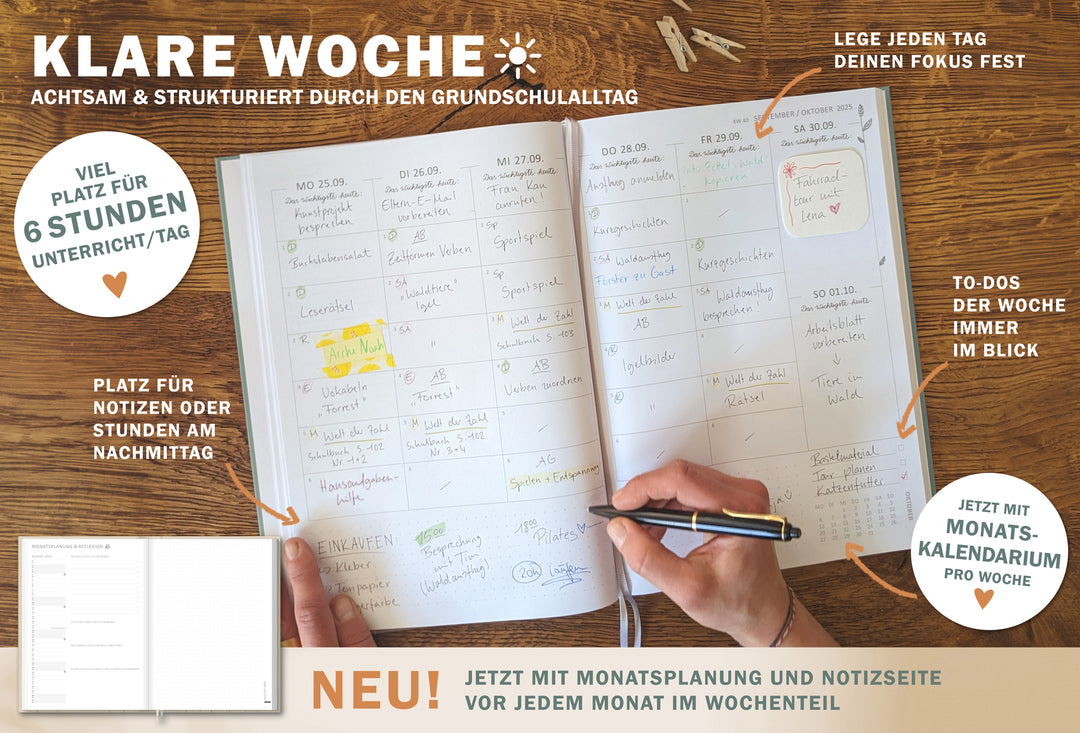 KLARE WOCHE
ACHTSAM & STRUKTURIERT DURCH DEN GRUNDSCHULALLTAG
LEGE JEDEN TAG
DEINEN FOKUS FEST
VIEL
PLATZ FÜR
6 STUNDEN
UNTERRICHT/TAG
PLATZ FÜR
NOTIZEN ODER
STUNDEN AM
NACHMITTAG
TO-DOS
DER WOCHE
IMMER
IM BLICK
JETZT MIT
MONATS-
KALENDARIUM
PRO WOCHE
KW 40 SEPTEMBER / OKTOBER 2025
MO 25.09.
Das wichtigste heute:
Kunstprojekt
besprechen
Buchstabensalat
Leserätsel
Arche Noah
Vokabeln
"Forrest"
M Welt der Zahl
Schulbuch S. 102
Nr. 1+2
Hausaufgaben-
hilfe
EINKAUFEN
Kleber
Tonpapier
DI 26.09.
Das wichtigste heute:
Eltern-E-Mail
vorbereiten
AB
Zeitformen Verben
SA
"Waldtiere"
Igel
SA
"
AB
"Forrest"
M Welt der Zahl
Schulbuch S. 102
Nr. 3+4
15:00
Besprechung
mit Tim
(Waldausflug)
MI 27.09.
Das wichtigste heute:
Frau Kau
anrufen!
Sp
Sportspiel
Sp
Sportspiel
M Welt der Zahl
Schulbuch S. 103
AB
Verben zuordnen
AG
Spielen + Entspannung
18:00
Pilates
20h laufen
DO 28.09.
Das wichtigste heute:
Ausflug anmelden
Kurzgeschichten
SA Waldausflug
Förster zu Gast
M Welt der Zahl
AB
Igelbilder
"
FR 29.09.
Das wichtigste heute:
Kopieren
Kurzgeschichten
SA Waldausflug
besprechen
M Welt der Zahl
Rätsel
SA 30.09.
Das wichtigste heute:
Fahrrad-
tour mit
Lena
SO 01.10.
Das wichtigste heute:
Arbeitsblatt
vorbereiten
Tiere im
Wald
Bastelmaterial
Tour planen
Katzenfutter
OKTOBER
MONATSPLANUNG & REFLEXION
NEU!
JETZT MIT MONATSPLANUNG UND NOTIZSEITE
VOR JEDEM MONAT IM WOCHENTEIL